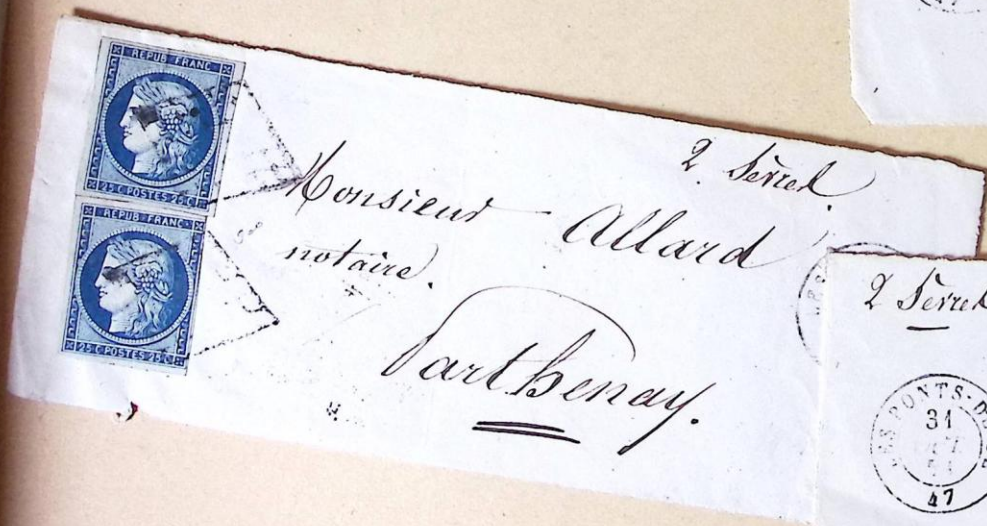 REPUB FRANC
25 C POSTES 25 C
REPUB FRANC
25 C POSTES 25 C
2. Serret
Monsieur Allard
notaire.
Parthenay.
2 Serret
LES PONTS-D
31
47